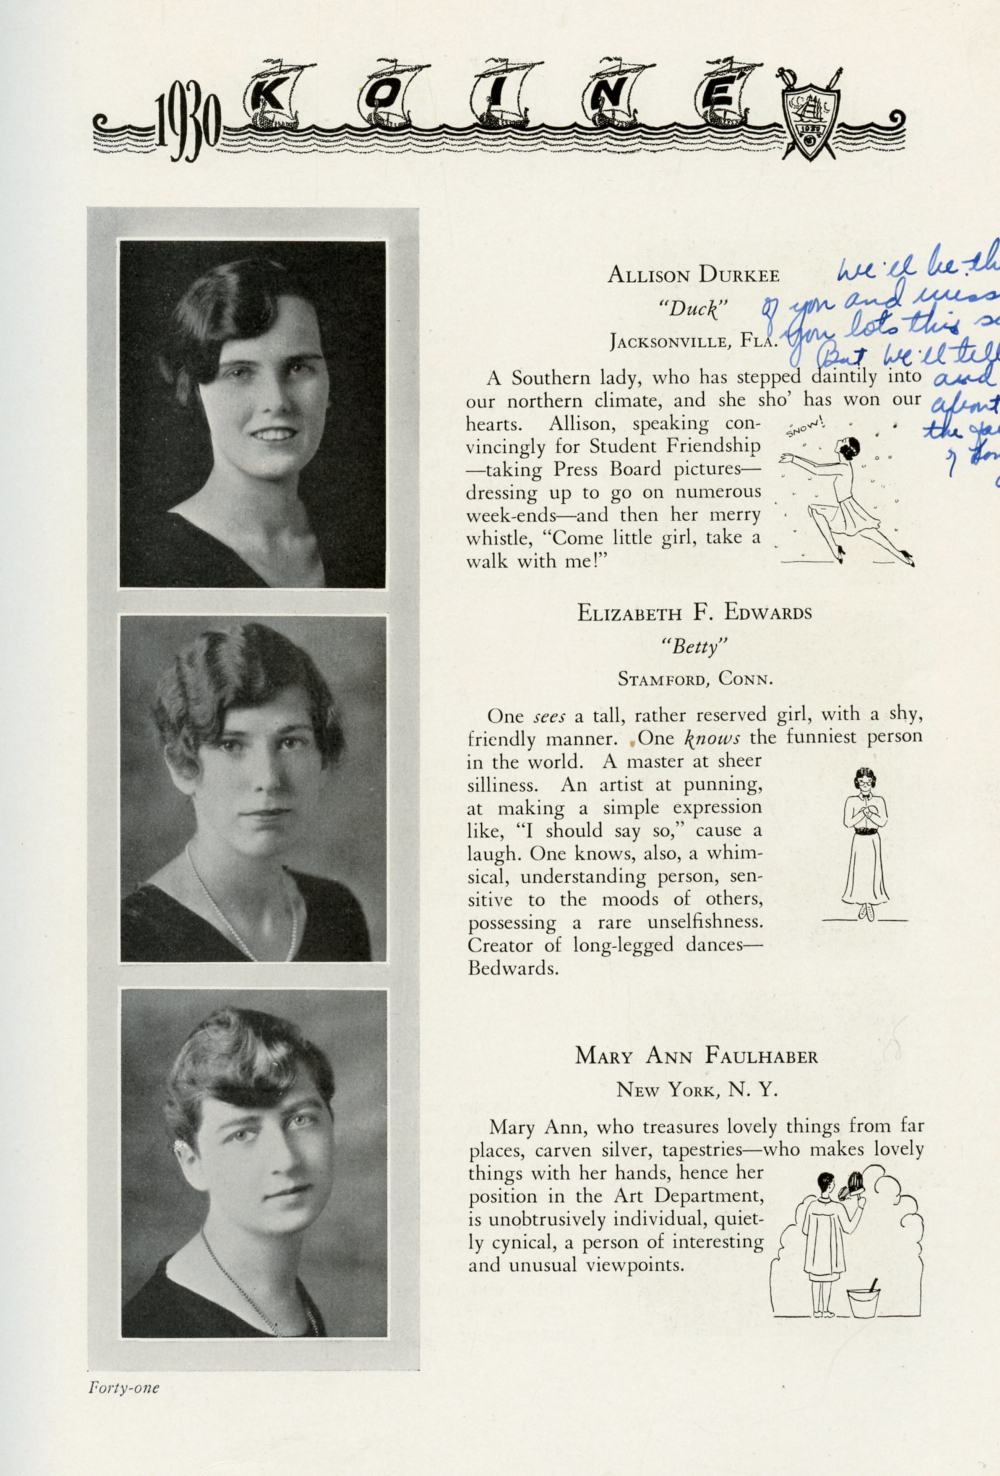 1930 KOINE
1930
ALLISON DURKEE
"Duck"
JACKSONVILLE, FLA.
A Southern lady, who has stepped daintily into
our northern climate, and she sho' has won our
hearts. Allison, speaking con-
vincingly for Student Friendship
—taking Press Board pictures—
dressing up to go on numerous
week-ends—and then her merry
whistle, "Come little girl, take a
walk with me!"
SNOW!
We'll be th
of you and miss
you lots this
But we'll tell
and
about
the
ELIZABETH F. EDWARDS
"Betty"
STAMFORD, CONN.
One sees a tall, rather reserved girl, with a shy,
friendly manner. One knows the funniest person
in the world. A master at sheer
silliness. An artist at punning,
at making a simple expression
like, "I should say so," cause a
laugh. One knows, also, a whim-
sical, understanding person, sen-
sitive to the moods of others,
possessing a rare unselfishness.
Creator of long-legged dances—
Bedwards.
MARY ANN FAULHABER
NEW YORK, N. Y.
Mary Ann, who treasures lovely things from far
places, carven silver, tapestries—who makes lovely
things with her hands, hence her
position in the Art Department,
is unobtrusively individual, quiet-
ly cynical, a person of interesting
and unusual viewpoints.
Forty-one